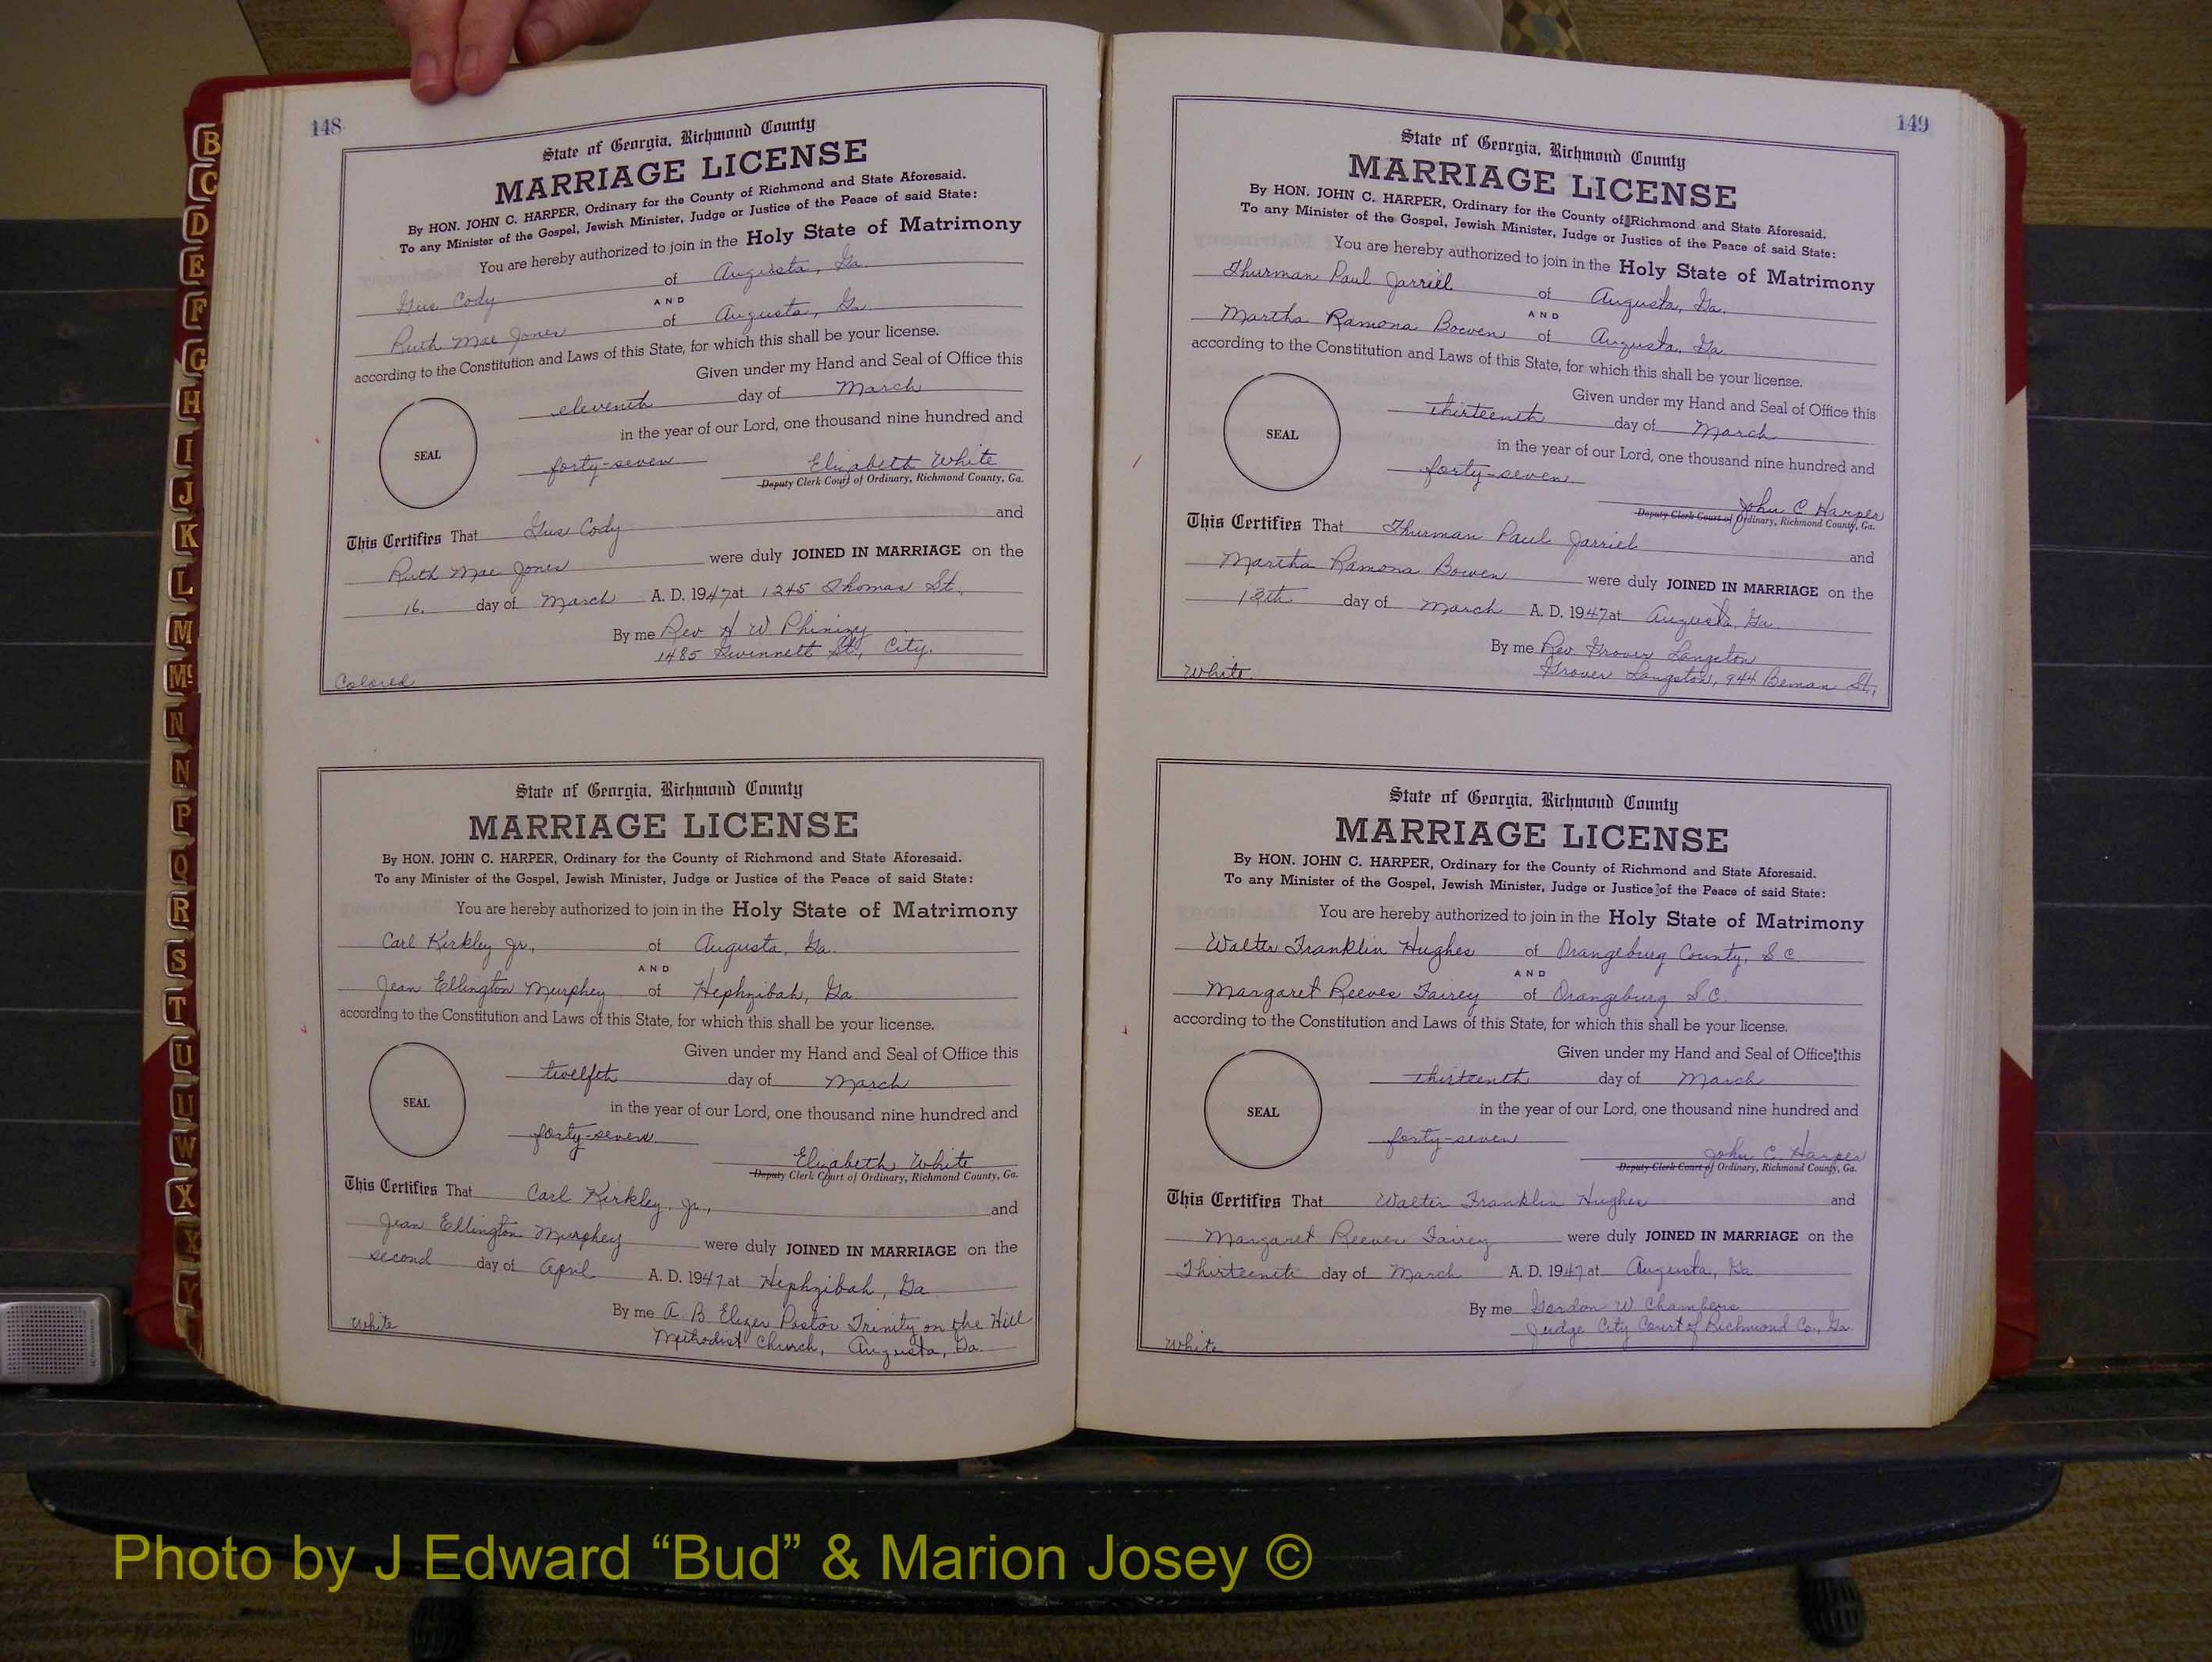 B
C
D
E
F
G
H
I
J
K
L
M
Mc
N
N
P
Q
R
S
T
U
U
W
X
Y
148
State of Georgia, Richmond County
MARRIAGE LICENSE
By HON. JOHN C. HARPER, Ordinary for the County of Richmond and State Aforesaid.
To any Minister of the Gospel, Jewish Minister, Judge or Justice of the Peace of said State:
You are hereby authorized to join in the Holy State of Matrimony
Gus Cody of Augusta, Ga.
AND
Ruth Mae Jones of Augusta, Ga.
according to the Constitution and Laws of this State, for which this shall be your license.
Given under my Hand and Seal of Office this
eleventh day of March
in the year of our Lord, one thousand nine hundred and
SEAL
forty-seven Elizabeth White
Deputy Clerk Court of Ordinary, Richmond County, Ga.
This Certifies That Gus Cody and
Ruth Mae Jones were duly JOINED IN MARRIAGE on the
16. day of March A. D. 1947 at 1245 Thomas St.,
By me Rev H W Phinizy
1485 Gwinnett St., City.
Colored
State of Georgia, Richmond County
MARRIAGE LICENSE
By HON. JOHN C. HARPER, Ordinary for the County of Richmond and State Aforesaid.
To any Minister of the Gospel, Jewish Minister, Judge or Justice of the Peace of said State:
You are hereby authorized to join in the Holy State of Matrimony
Carl Kirkley Jr., of Augusta, Ga.
AND
Jean Ellington Murphey of Hephzibah, Ga.
according to the Constitution and Laws of this State, for which this shall be your license.
Given under my Hand and Seal of Office this
twelfth day of March
SEAL
in the year of our Lord, one thousand nine hundred and
forty-seven Elizabeth White
Deputy Clerk Court of Ordinary, Richmond County, Ga.
This Certifies That Carl Kirkley, Jr., and
Jean Ellington Murphey were duly JOINED IN MARRIAGE on the
second day of April A. D. 1947 at Hephzibah, Ga.
By me A. B. Elizer Pastor Trinity on the Hill
White
Methodist Church, Augusta, Ga.
149
State of Georgia, Richmond County
MARRIAGE LICENSE
By HON. JOHN C. HARPER, Ordinary for the County of Richmond and State Aforesaid.
To any Minister of the Gospel, Jewish Minister, Judge or Justice of the Peace of said State:
You are hereby authorized to join in the Holy State of Matrimony
Thurman Paul Jarriel of Augusta, Ga.
AND
Martha Ramona Bowen of Augusta, Ga.
according to the Constitution and Laws of this State, for which this shall be your license.
Given under my Hand and Seal of Office this
thirteenth day of March
SEAL
in the year of our Lord, one thousand nine hundred and
forty-seven
John C Harper
Deputy Clerk Court of Ordinary, Richmond County, Ga.
This Certifies That Thurman Paul Jarriel and
Martha Ramona Bowen were duly JOINED IN MARRIAGE on the
13th day of March A. D. 1947 at Augusta, Ga.
By me Rev Grover Langston
Grover Langston, 944 Beman St.,
White.
State of Georgia, Richmond County
MARRIAGE LICENSE
By HON. JOHN C. HARPER, Ordinary for the County of Richmond and State Aforesaid.
To any Minister of the Gospel, Jewish Minister, Judge or Justice of the Peace of said State:
You are hereby authorized to join in the Holy State of Matrimony
Walter Franklin Hughes of Orangeburg County, S C
AND
Margaret Reeves Fairey of Orangeburg S.C.
according to the Constitution and Laws of this State, for which this shall be your license.
Given under my Hand and Seal of Office this
thirteenth day of March
SEAL
in the year of our Lord, one thousand nine hundred and
forty-seven John C. Harper
Deputy Clerk Court of Ordinary, Richmond County, Ga.
This Certifies That Walter Franklin Hughes and
Margaret Reeves Fairey were duly JOINED IN MARRIAGE on the
Thirteenth day of March A. D. 1947 at Augusta, Ga
By me Gordon W Chambers
Judge City Court of Richmond Co., Ga.
White
Photo by J Edward “Bud” & Marion Josey ©